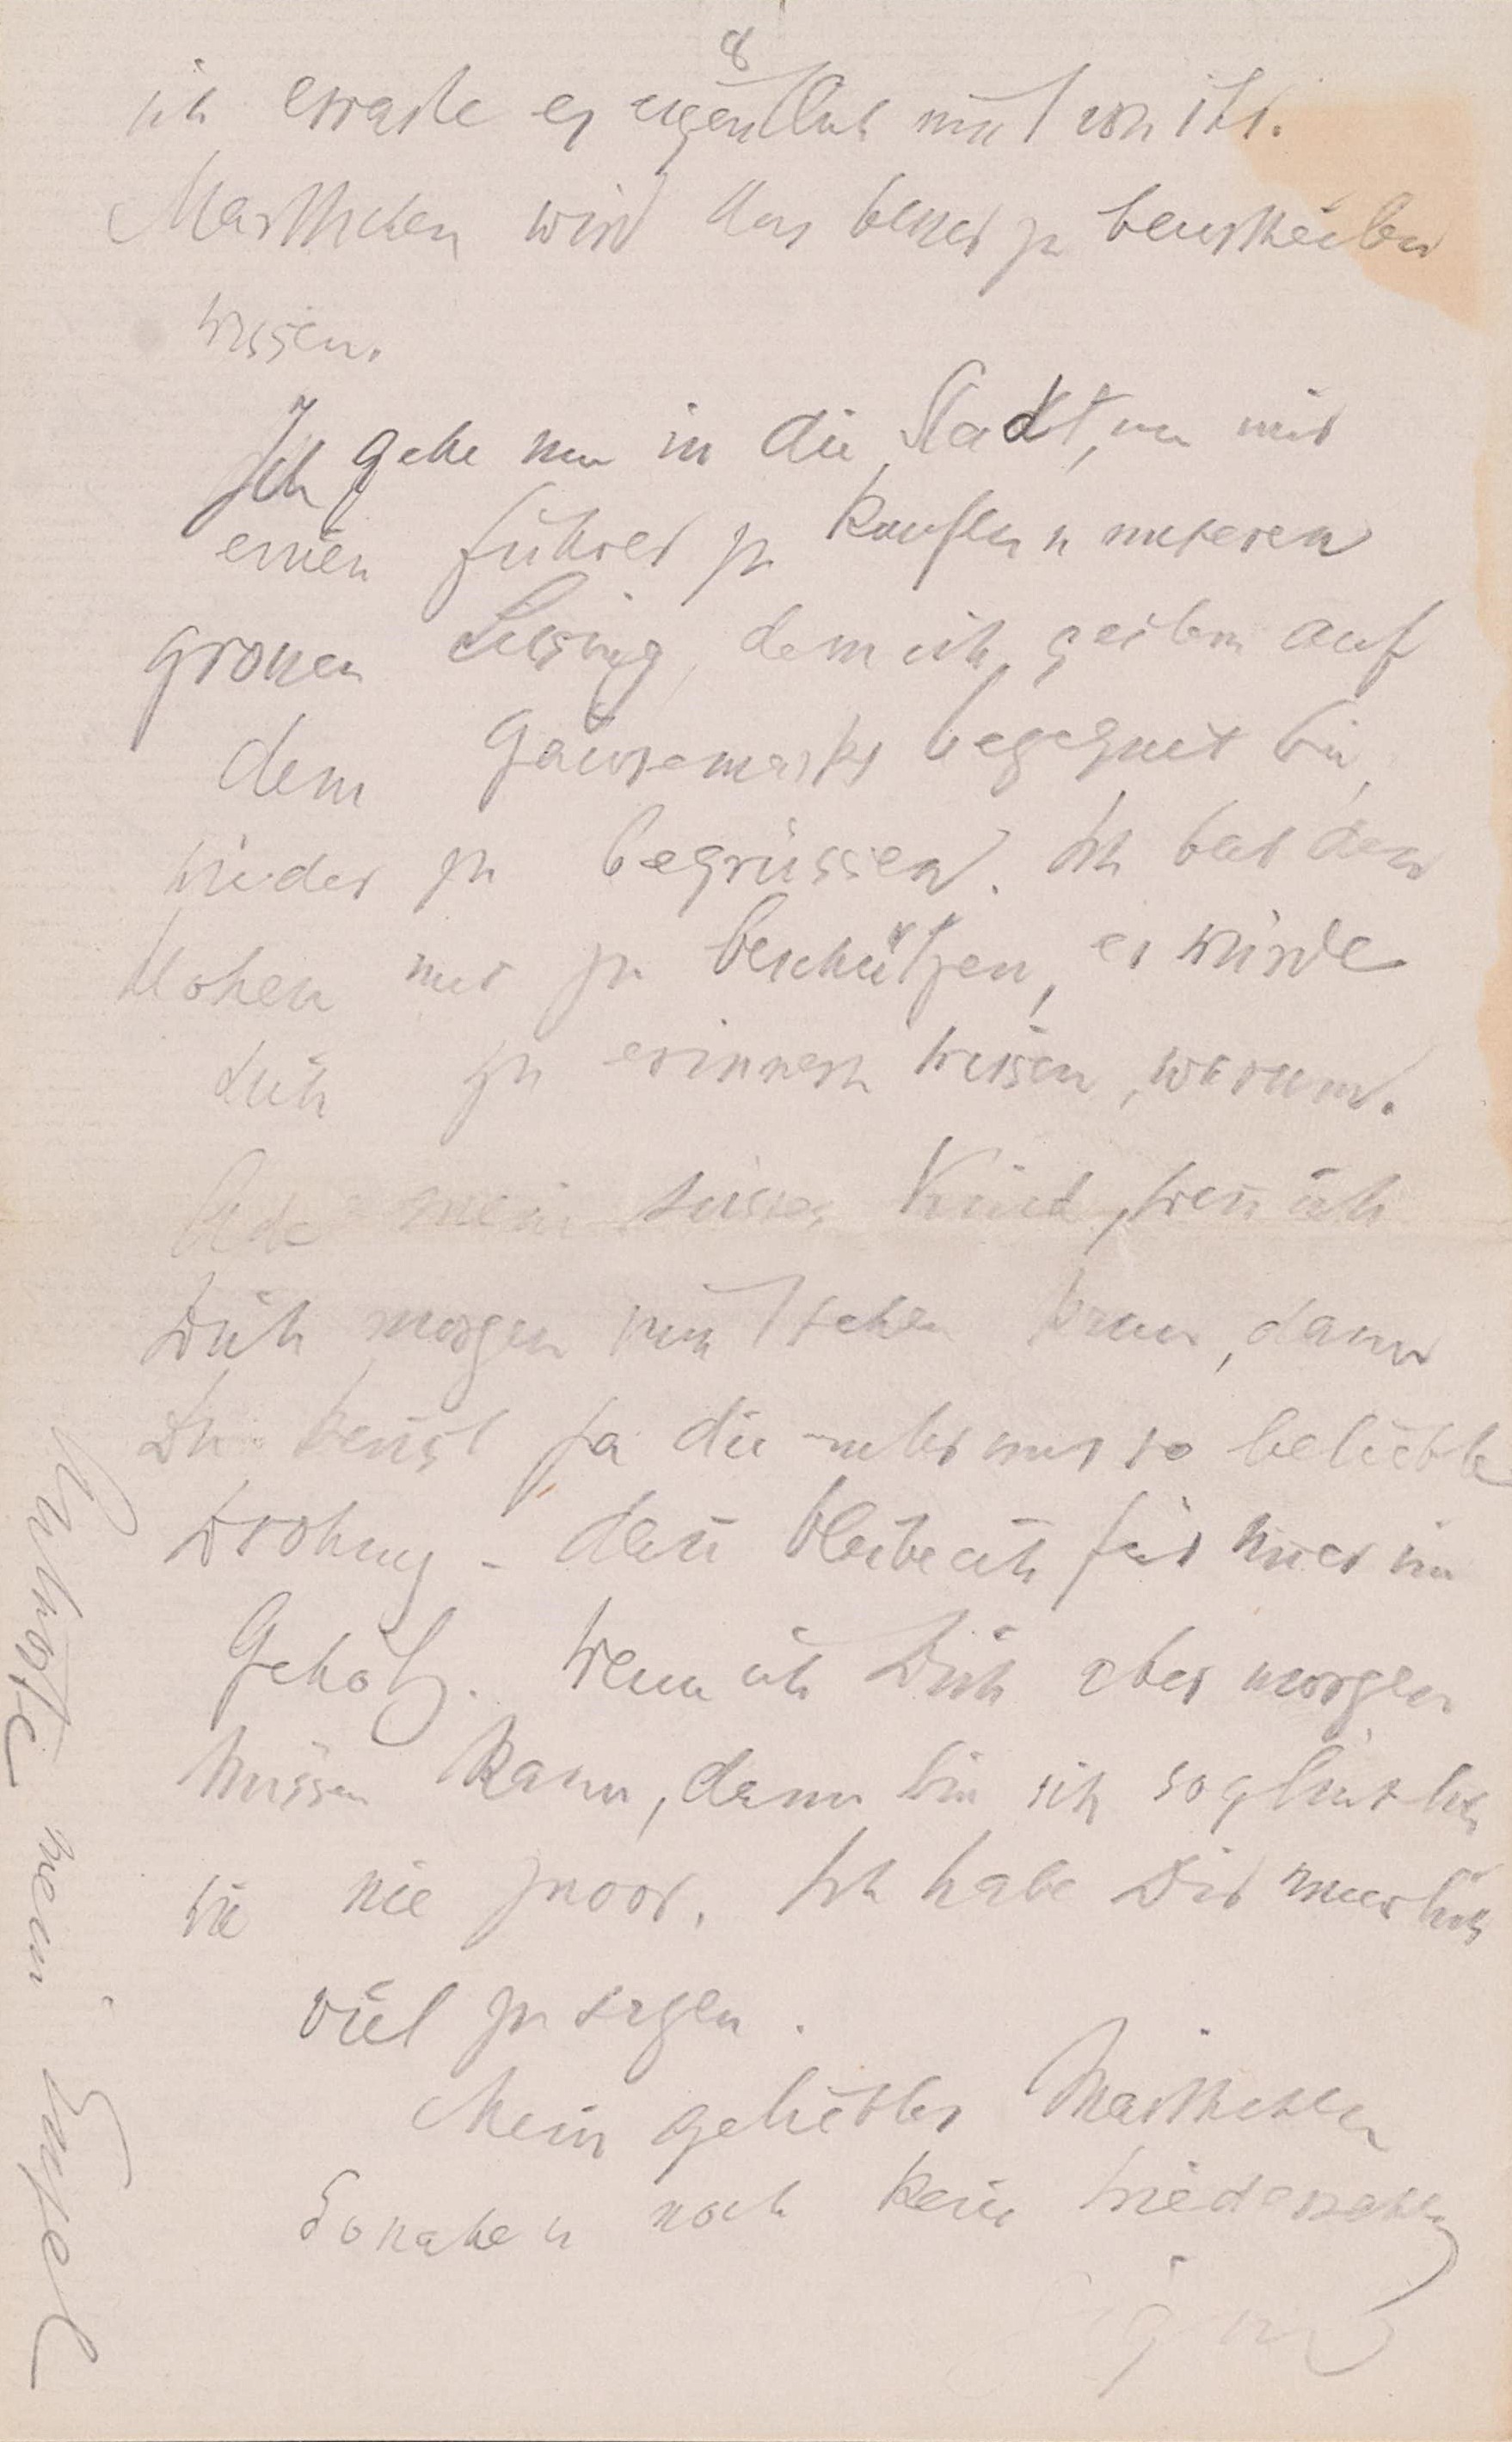 8
ich erwarte es eigentlich nicht von ihr.
Marthchen wird das besser zu beurtheilen
wissen.
Ich gehe nun in die Stadt, um mir
einen Führer zu kaufen u unseren
grossen Lessing, dem ich gestern auf
dem Gänsemarkt begegnet bin,
wieder zu begrüssen. Ich bat den
Hohen uns zu beschützen, er würde
sich zu erinnern wissen, warum.
Ade mein süsses Kind, wenn ich
Dich morgen nicht sehen kann, dann
Du kennst ja die unter uns so beliebte
Drohung – dann bleibe ich für immer im
Gehölz. Wenn ich Dich aber morgen
küssen kann, dann bin ich so glücklich
wie nie zuvor. Ich habe Dir unendlich
viel zu sagen.
Mein geliebtes Marthchen
So nahe u noch kein Wiedersehen
Sigmund
mein Engel